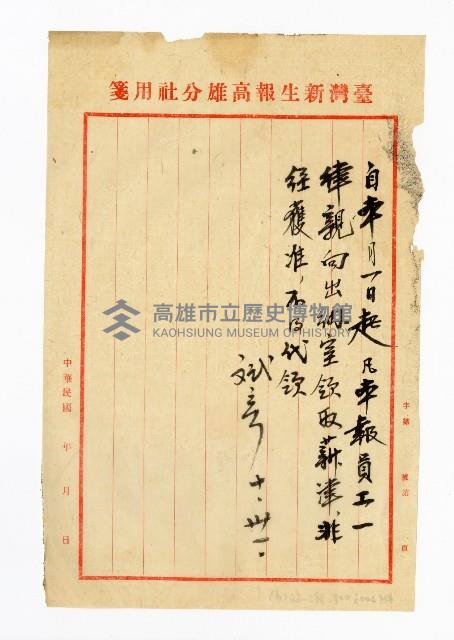 臺灣新生報高雄分社用箋
自本月一日起凡本報員工一
律親向出納室領取薪津,非
經獲准,不得代領
十、卅一、
中華民國 年 月 日
字第 號
頁
高雄市立歷史博物館
KAOHSIUNG MUSEUM OF HISTORY